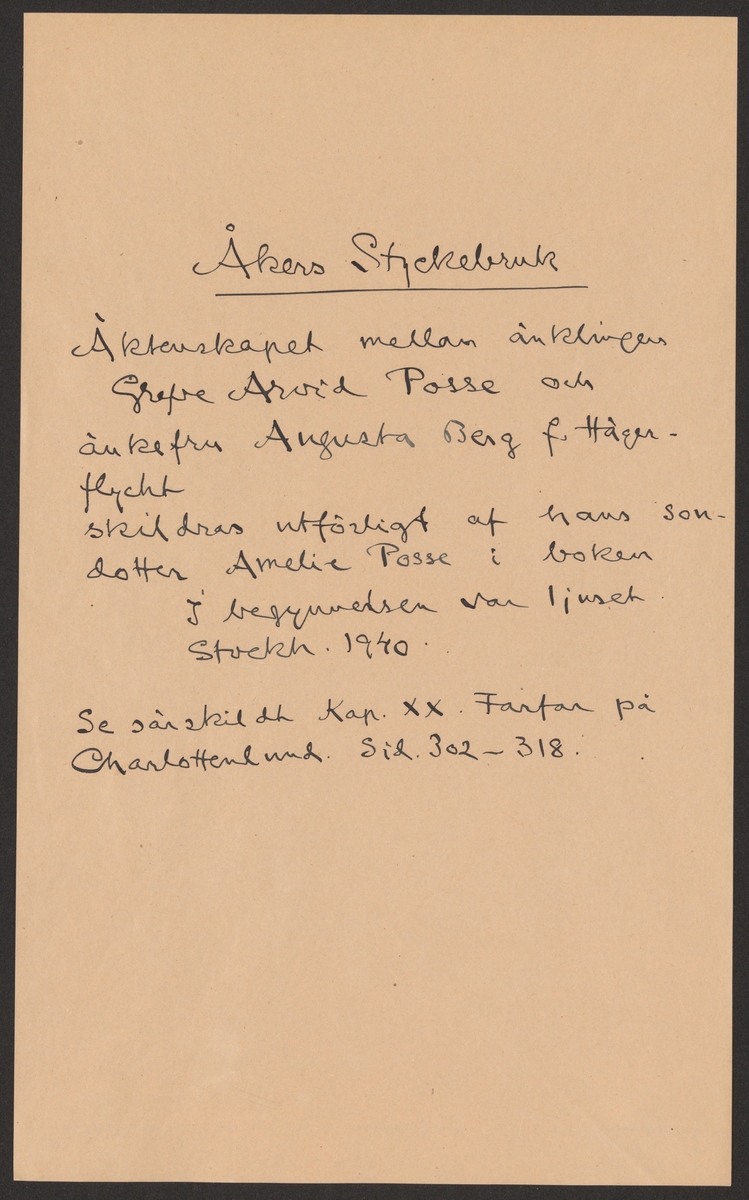 Åkers Styckebruk
Äktenskapet mellan änklingen
Grefve Arvid Posse och
änkefru Augusta Berg f. Häger-
flycht
skildras utförligt af hans son-
dotter Amelie Posse i boken
I begynnelsen var ljuset.
Stockh. 1940.
Se särskildt Kap. XX. Farfar på
Charlottenlund. Sid. 302–318.